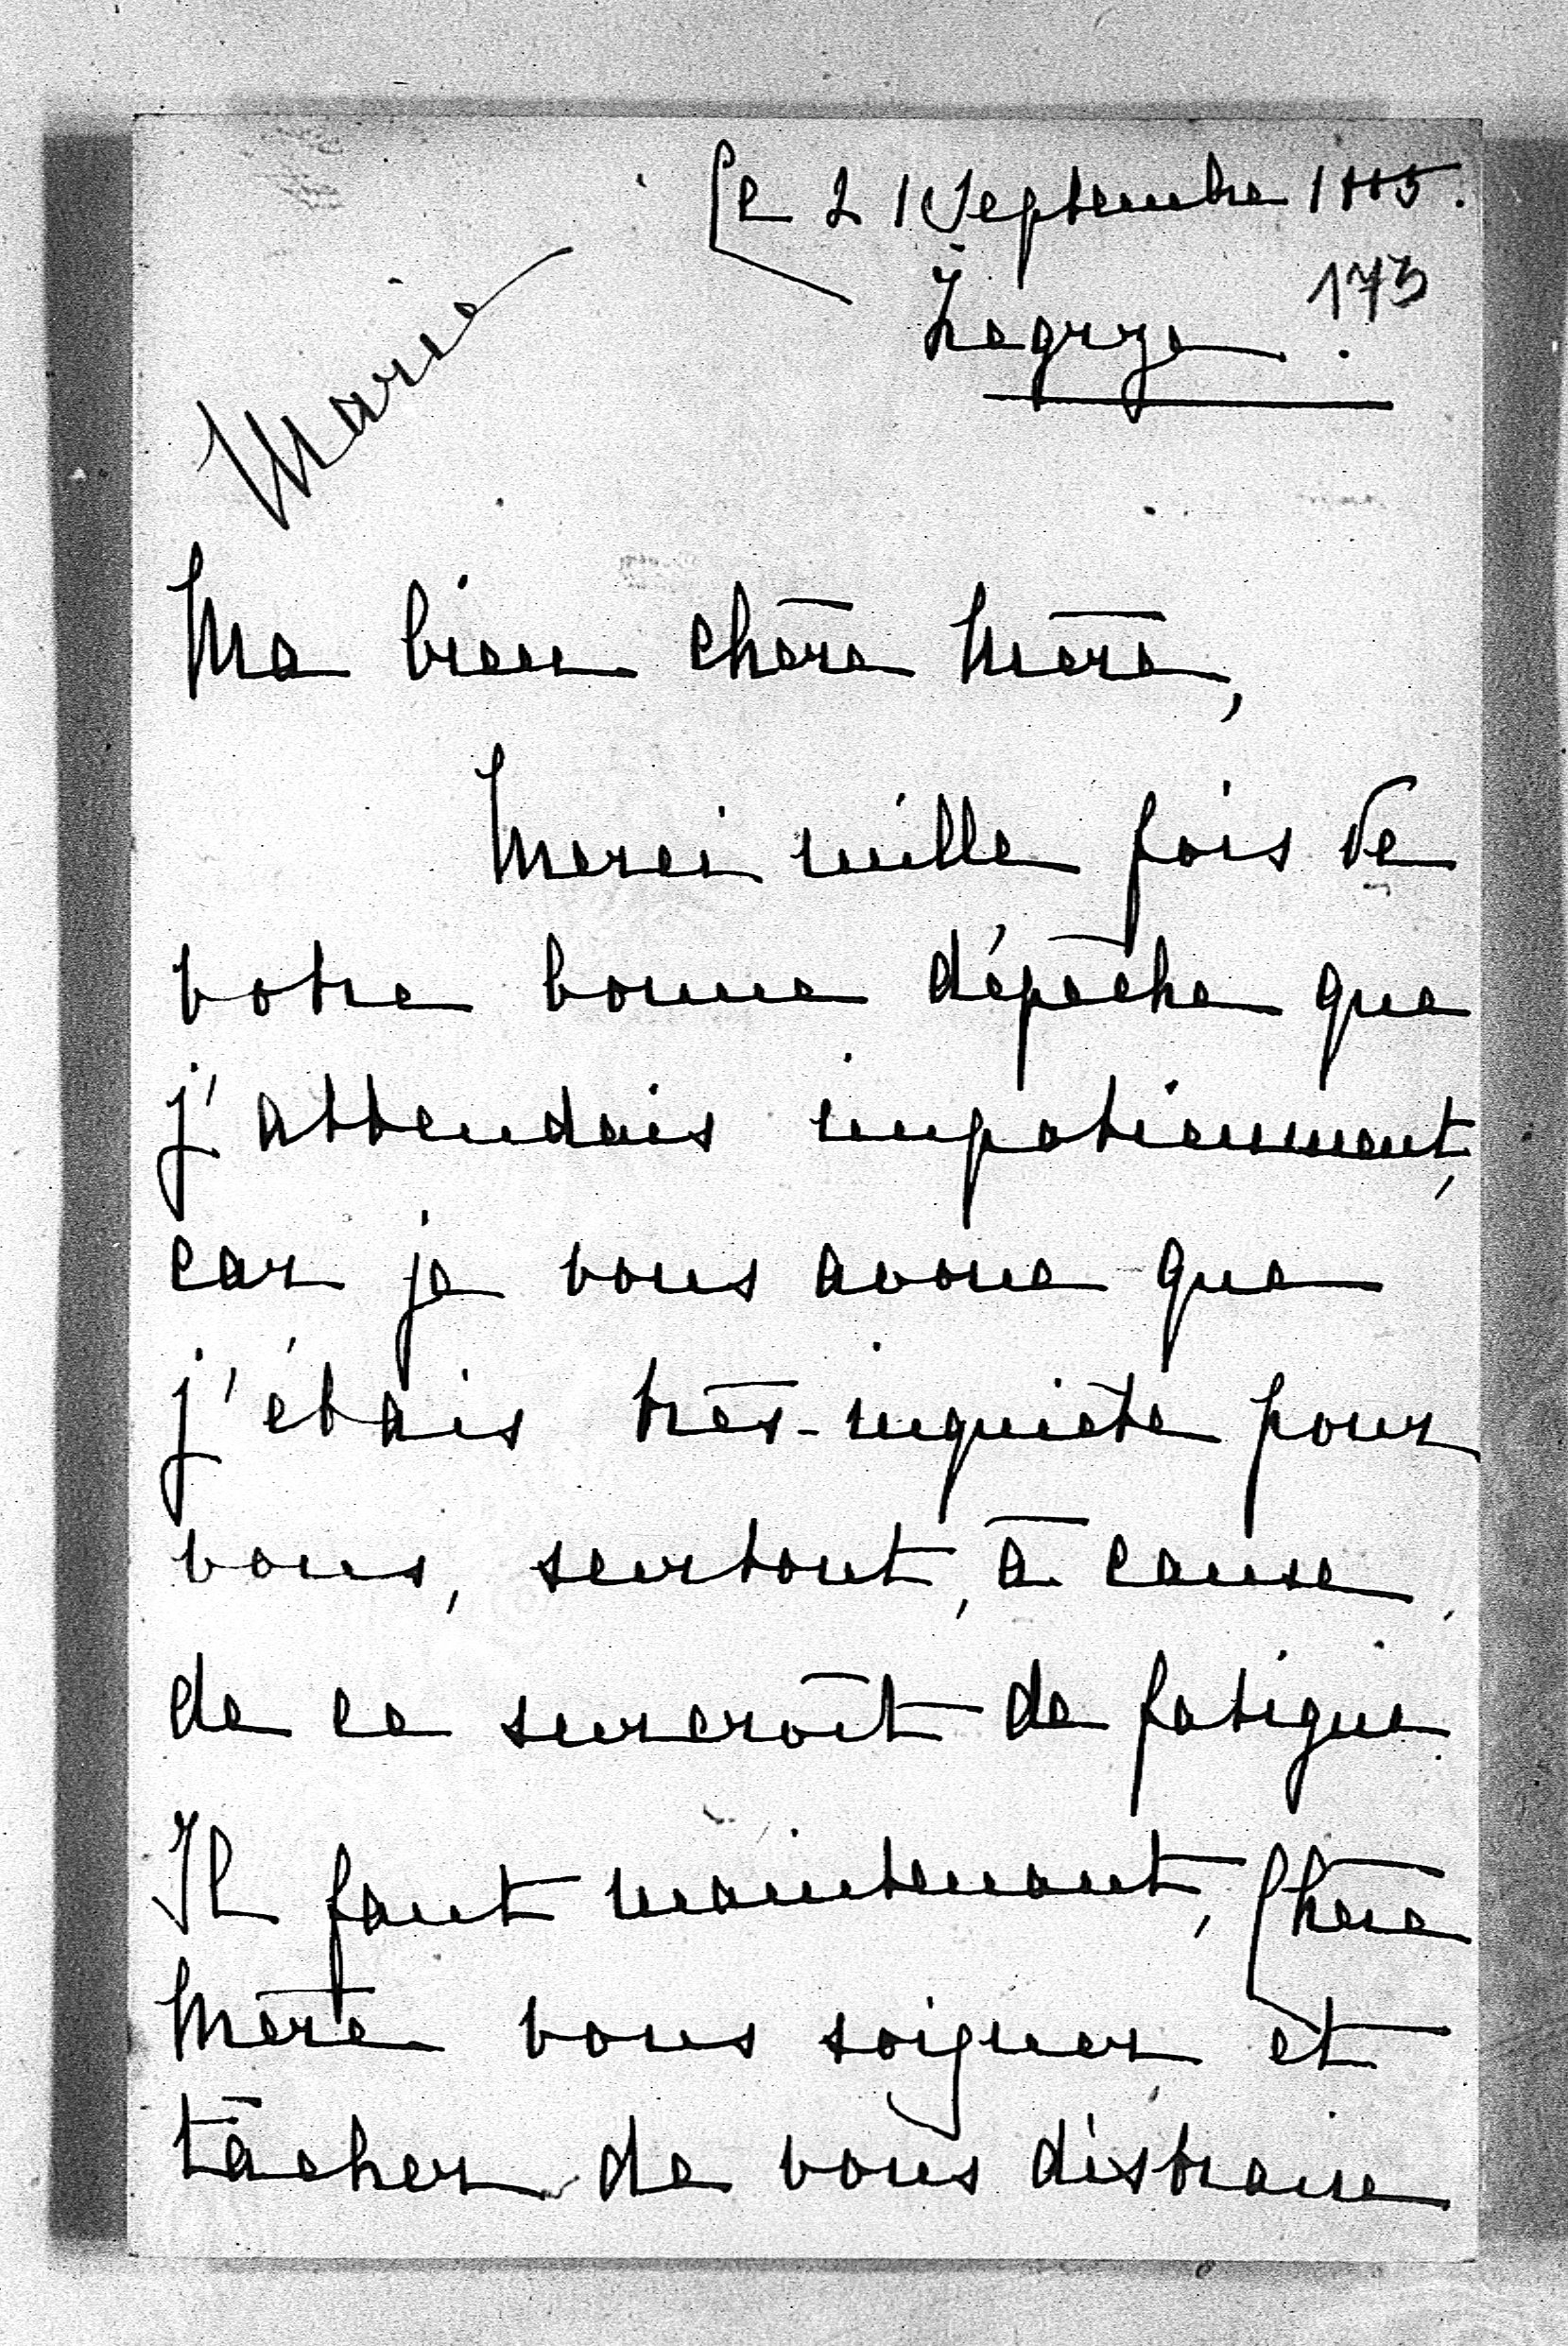 Ce 21 Septembre 1885.
173
Zegrze.
Marie
Ma bien chère Mère,
Merci mille fois de
votre bonne dépêche que
j'attendais impatiemment,
car je vous avoue que
j'étais très-inquiète pour
vous, surtout, à cause,
de ce surcroît de fatigue.
Il faut maintenant, Chère
Mère vous soigner et
tâcher de vous distraire